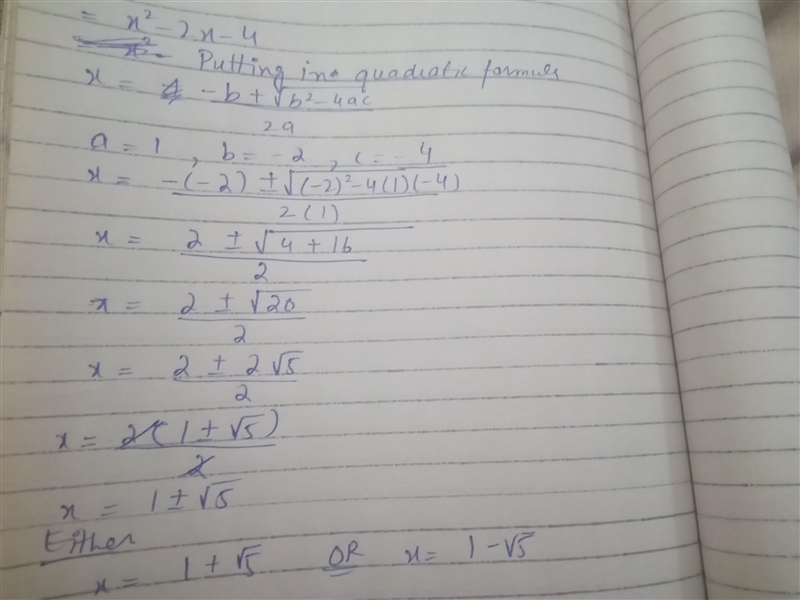 = x² - 2x - 4
Putting in quadratic formula
x = -b + √b² - 4ac / 2a
a = 1 , b = -2 , c = -4
x = -(-2) ± √(-2)² - 4(1)(-4) / 2(1)
x = 2 ± √4 + 16 / 2
x = 2 ± √20 / 2
x = 2 ± 2√5 / 2
x = 2(1 ± √5) / 2
x = 1 ± √5
Either
x = 1 + √5 OR x = 1 - √5